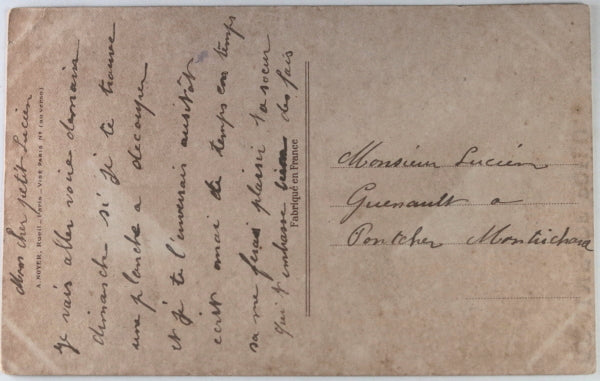 Mon cher petit Lucien
je vais aller voire demain
dimanche si je te trouve
une planche a decouper
et je te l'enverrais aussitôt
ecrit moi de temps en temps
sa me ferais plaisir ta soeur
qui t'embrasse bien des fois
A. NOYER, Rueil - Paris -
Fabriqué en France
Monsieur Lucien
Guenault a
Pontcher Montrichard